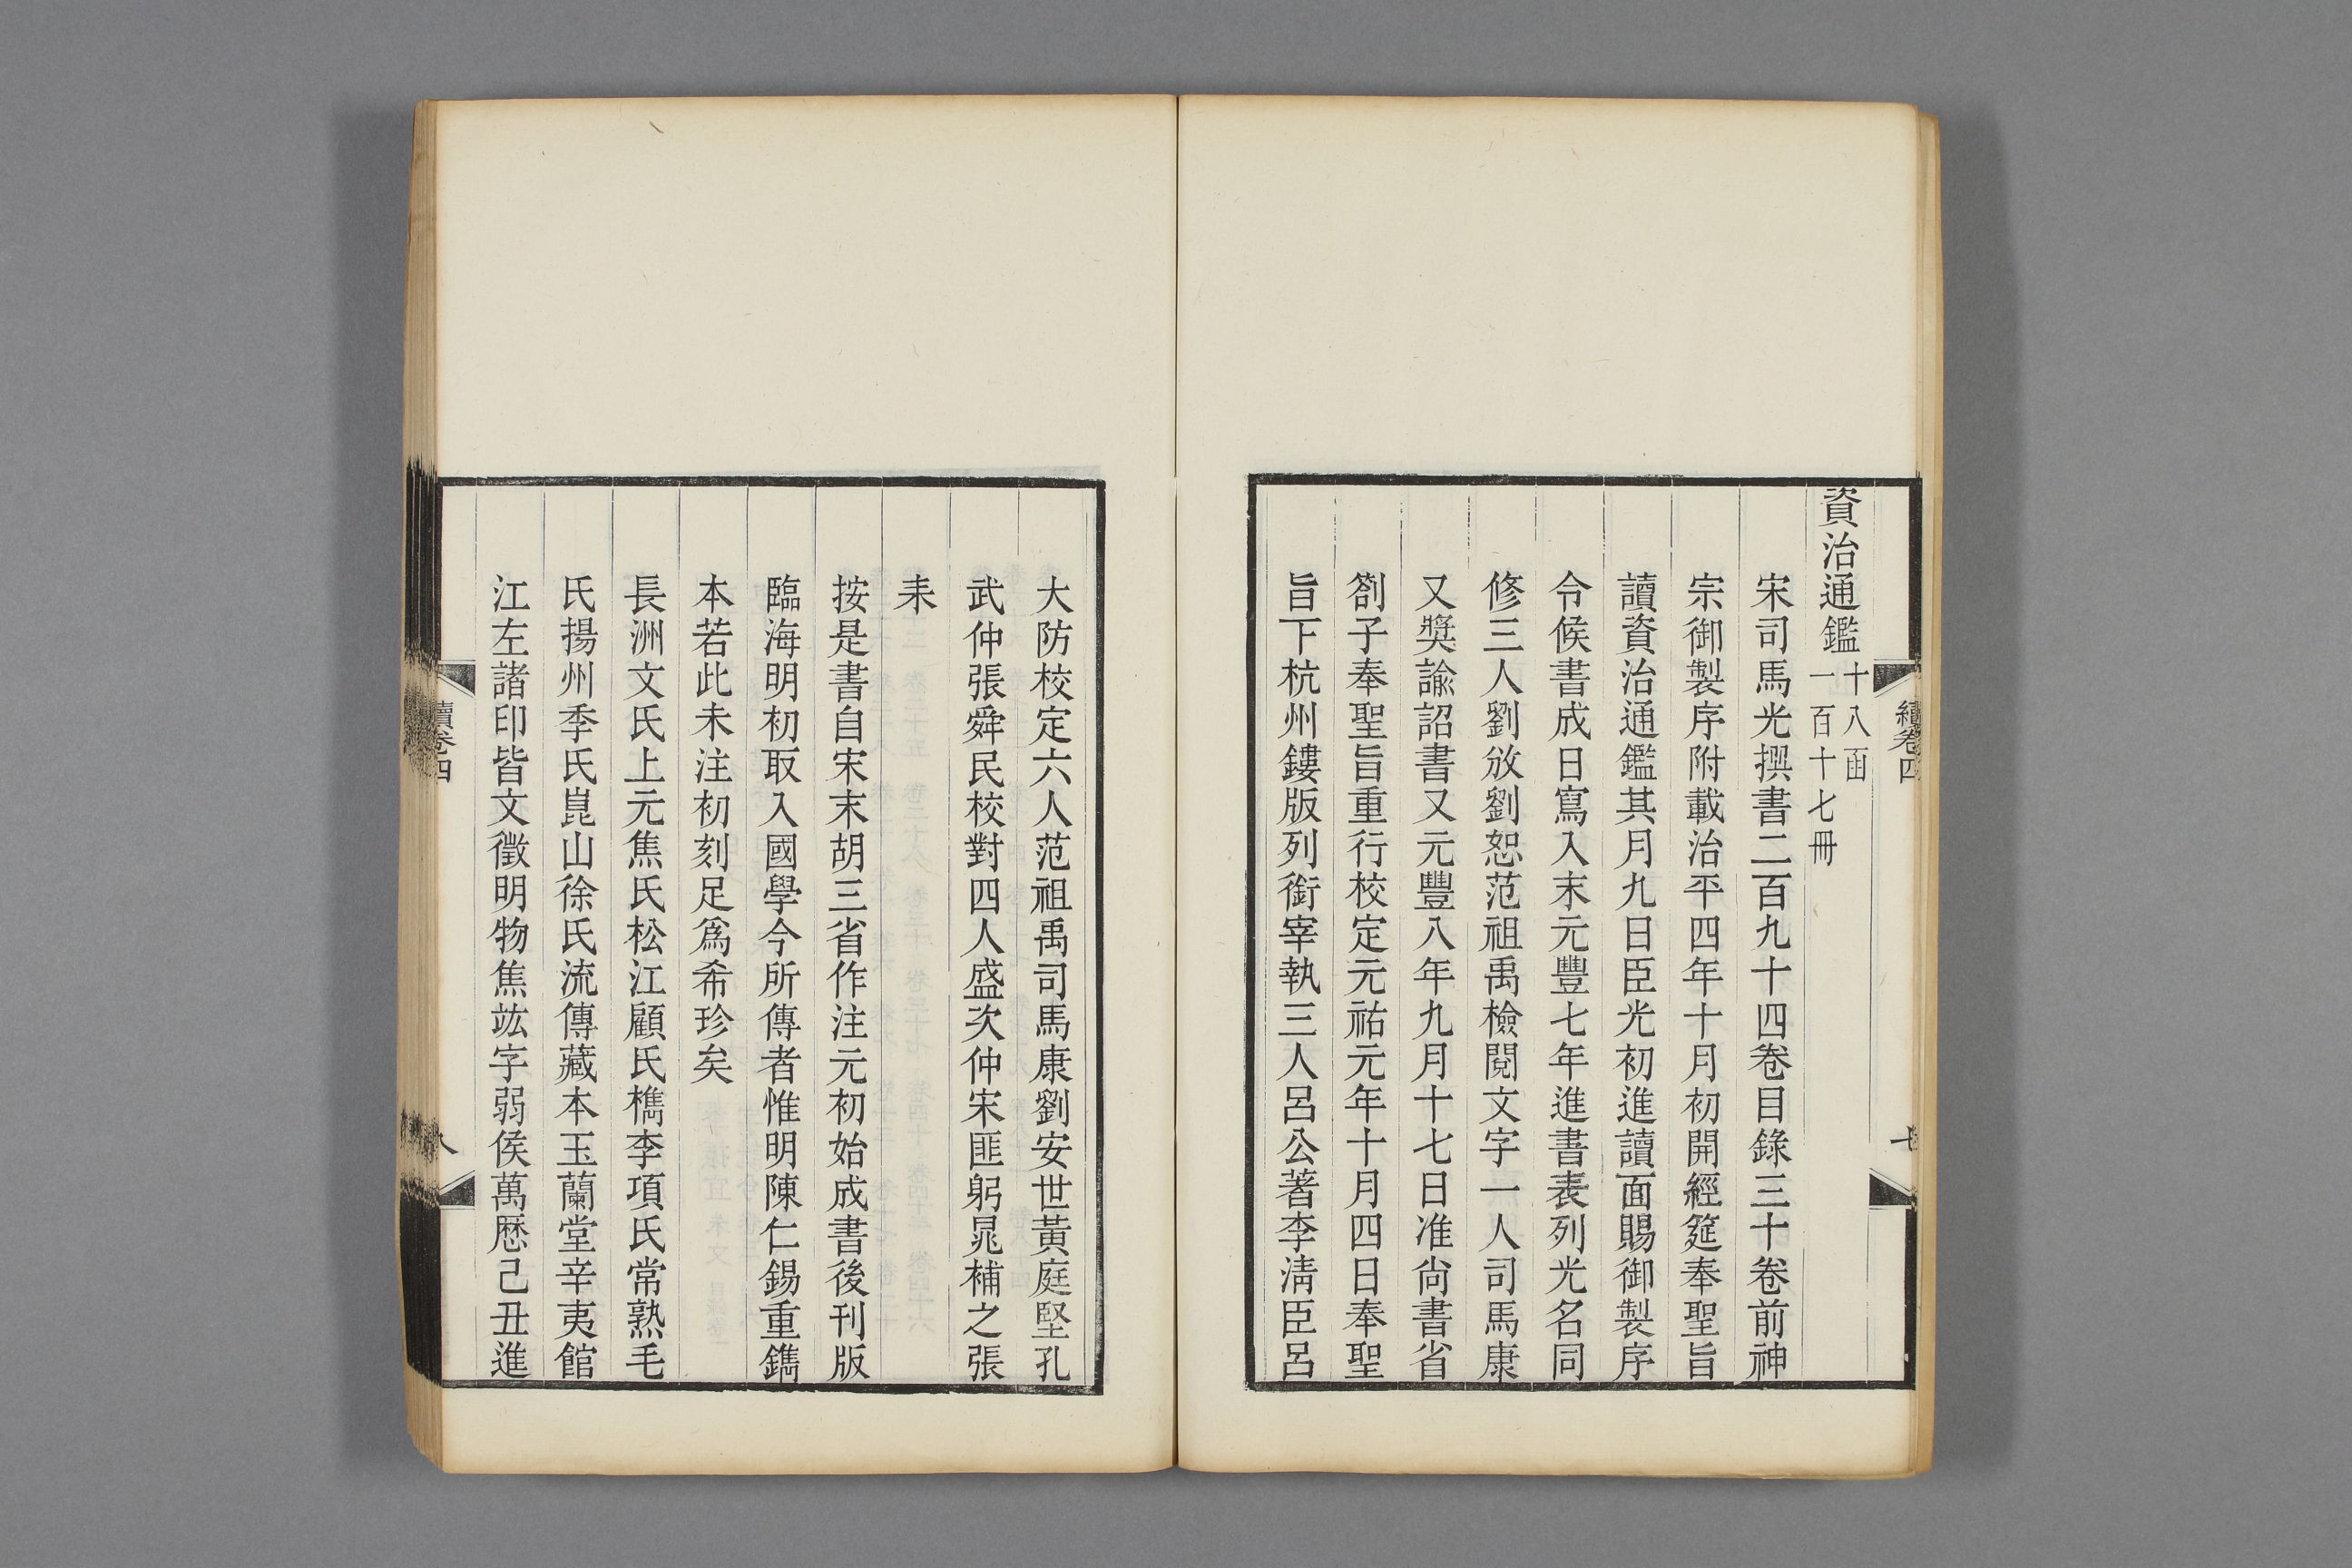 續卷四
七
資治通鑑十八函
一百十七冊
宋司馬光撰書二百九十四卷目錄三十卷前神
宗御製序附載治平四年十月初開經筵奉聖旨
讀資治通鑑其月九日臣光初進讀面賜御製序
令候書成日寫入末元豐七年進書表列光名同
修三人劉攽劉恕范祖禹檢閱文字一人司馬康
又獎諭詔書又元豐八年九月十七日准尚書省
劄子奉聖旨重行校定元祐元年十月四日奉聖
旨下杭州鏤版列銜宰執三人呂公著李清臣呂
大防校定六人范祖禹司馬康劉安世黃庭堅孔
武仲張舜民校對四人盛次仲宋匪躬晁補之張
耒
按是書自宋末胡三省作注元初始成書後刊版
臨海明初取入國學今所傳者惟明陳仁錫重鐫
本若此未注初刻足爲希珍矣
長洲文氏上元焦氏松江顧氏檇李項氏常熟毛
氏揚州季氏崑山徐氏流傳藏本玉蘭堂辛夷館
江左諸印皆文徵明物焦竑字弱侯萬厯己丑進
續卷四
八